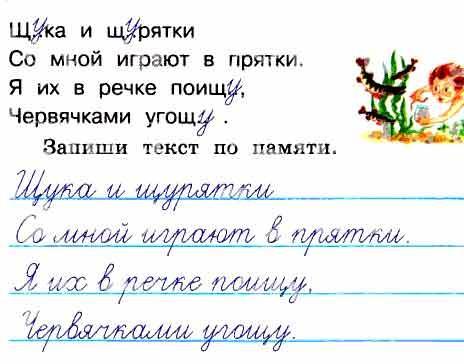 Щука и щурятки
Со мной играют в прятки.
Я их в речке поищу,
Червячками угощу .
Запиши текст по памяти.
Щука и щурятки
Со мной играют в прятки.
Я их в речке поищу,
Червячками угощу.